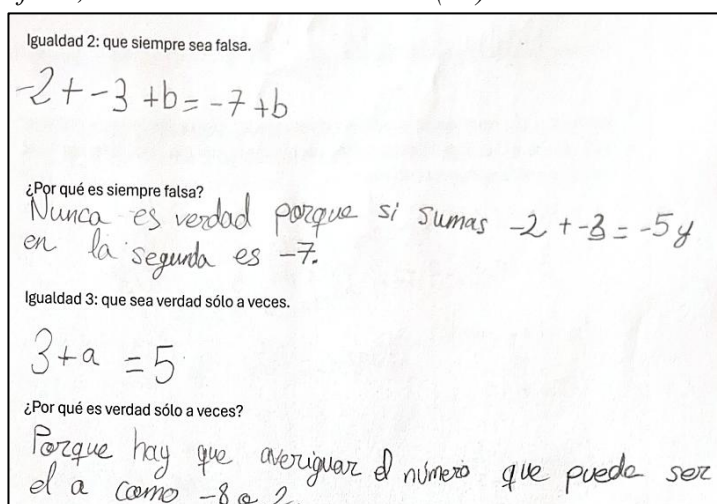 Igualdad 2: que siempre sea falsa.
-2 + -3 + b = -7 + b
¿Por qué es siempre falsa?
Nunca es verdad porque si sumas -2 + -3 = -5 y
en la segunda es -7.
Igualdad 3: que sea verdad sólo a veces.
3 + a = 5
¿Por qué es verdad sólo a veces?
Porque hay que averiguar el número que puede ser
el a como -8 o 2